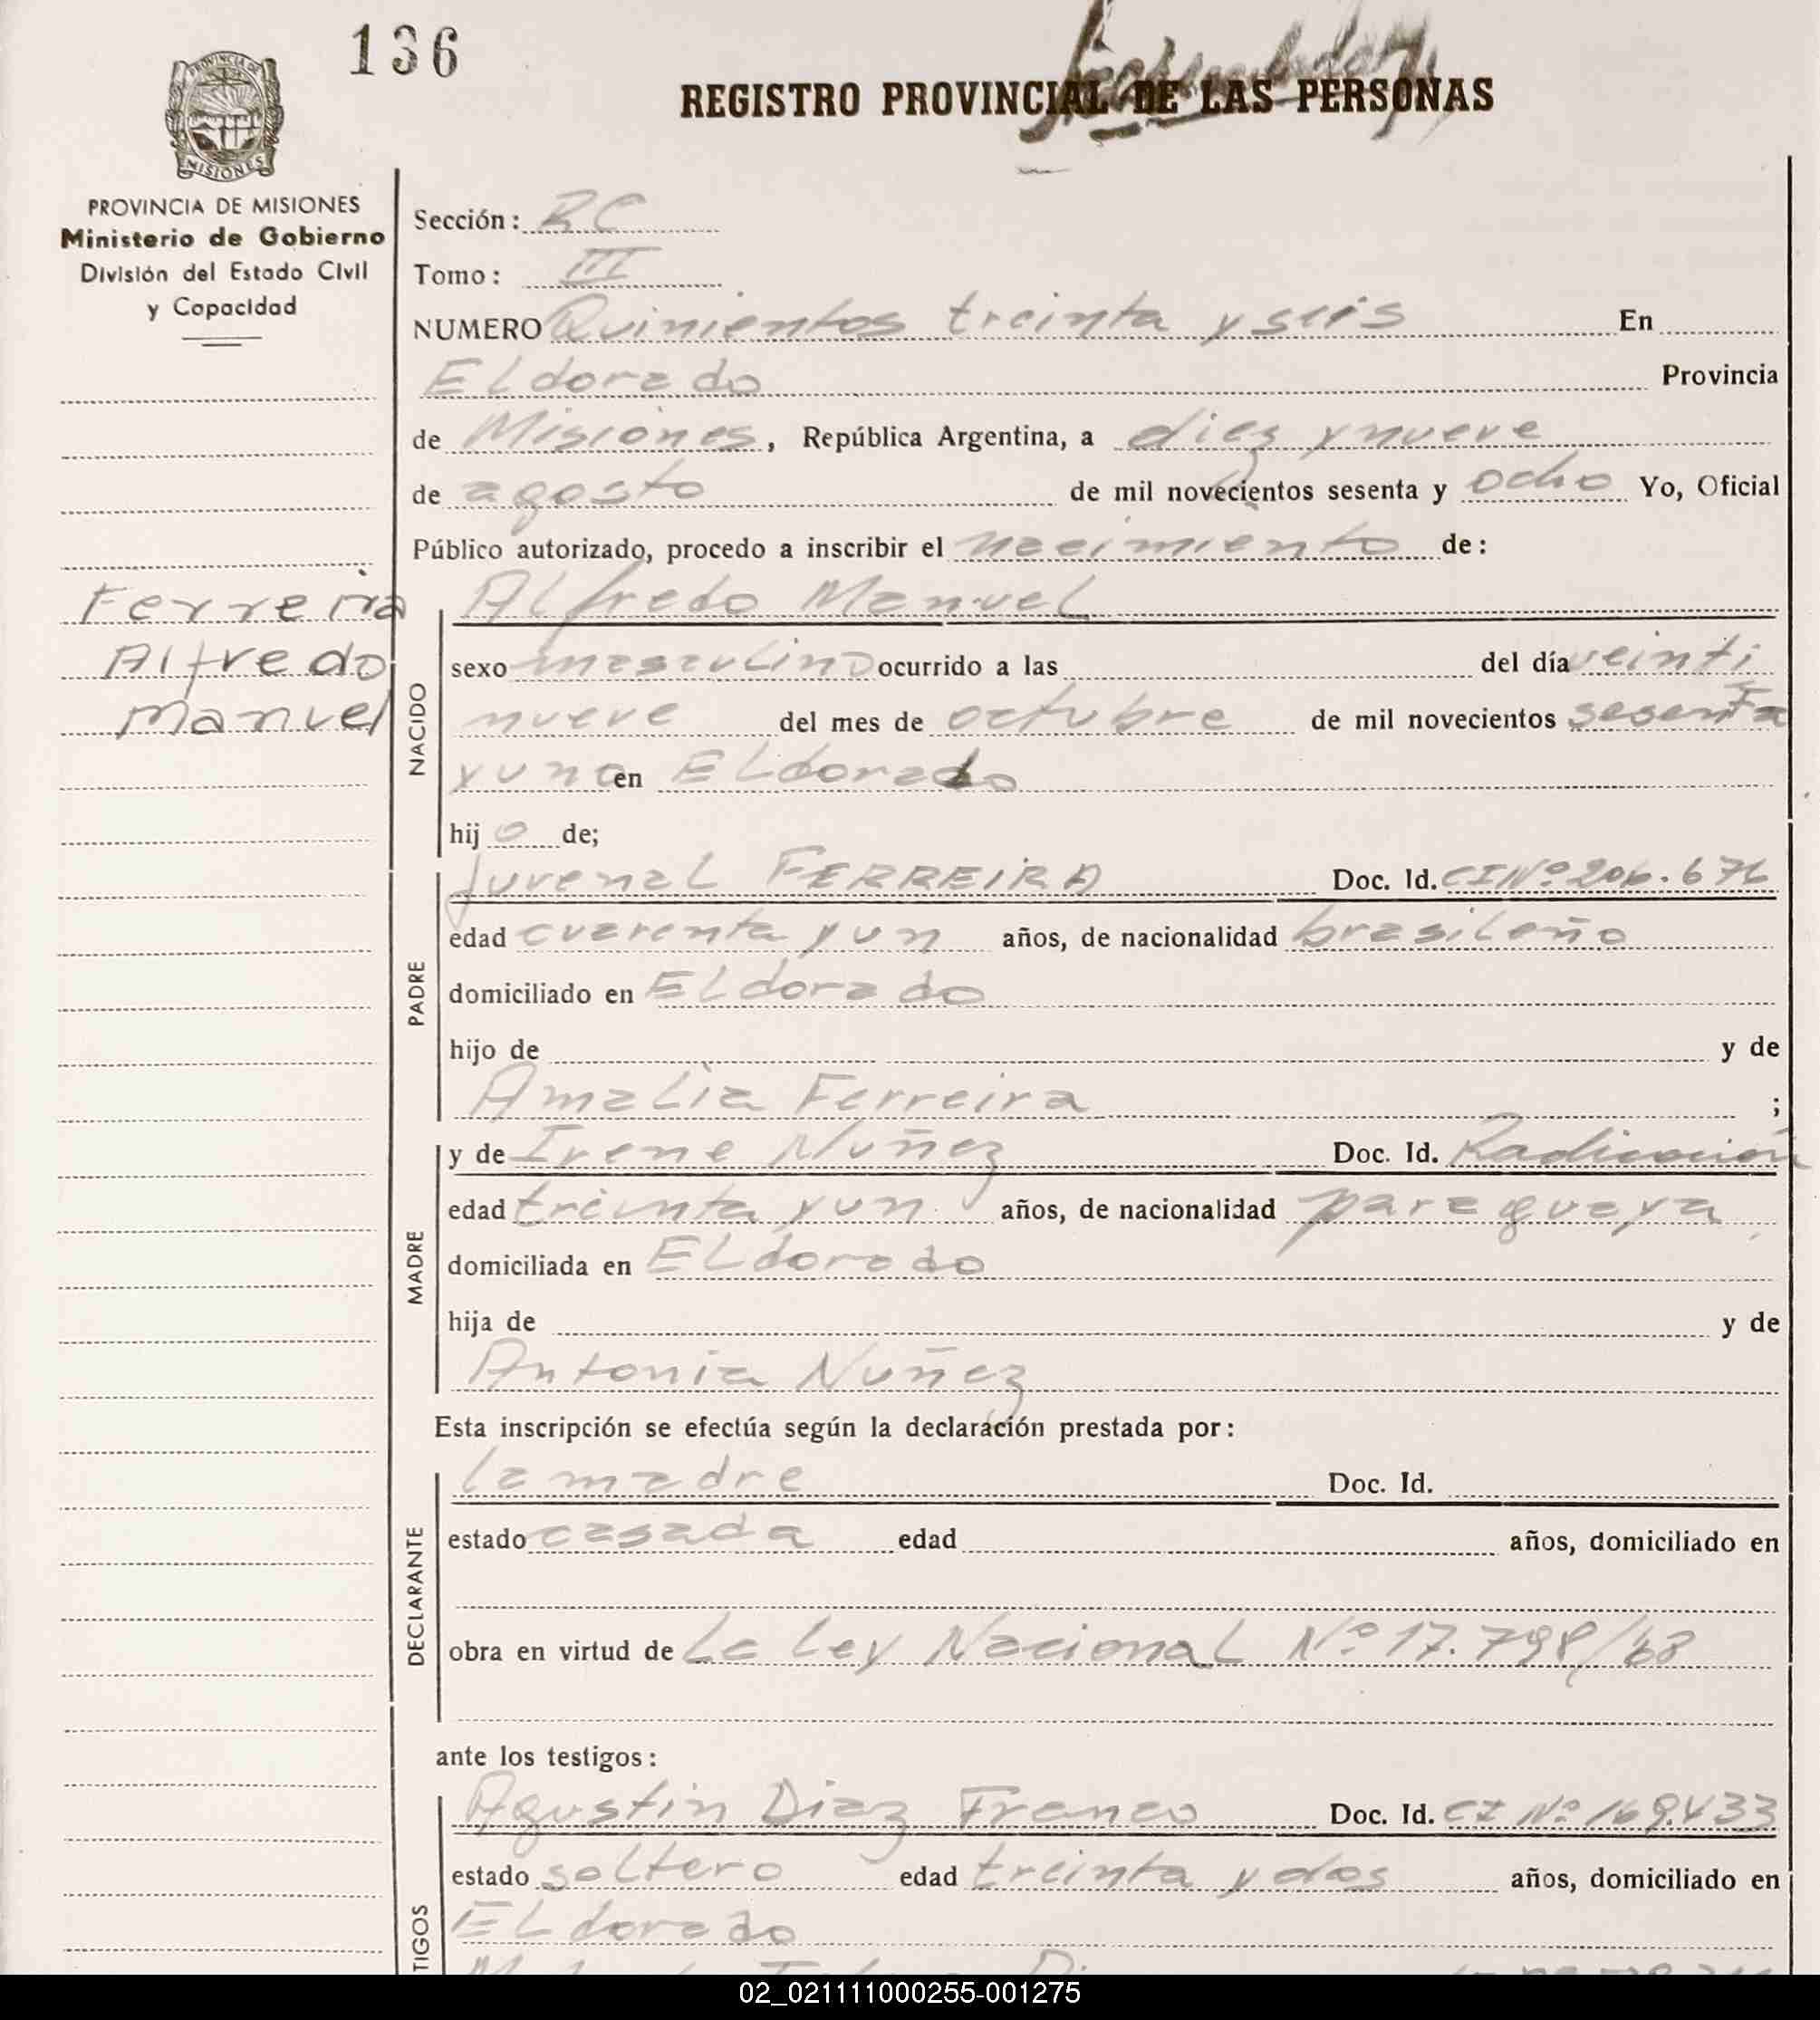 136
REGISTRO PROVINCIAL DE LAS PERSONAS
PROVINCIA DE
MISIONES
PROVINCIA DE MISIONES
Ministerio de Gobierno
División del Estado Civil
y Capacidad
Sección: RC
Tomo: III
NUMERO Quinientos treinta y seis En
ELdorado Provincia
de Misiones, República Argentina, a diez y nueve
de agosto de mil novecientos sesenta y ocho Yo, Oficial
Público autorizado, procedo a inscribir el nacimiento de:
Ferreira
Alfredo
Manuel
NACIDO
ALfredo ManueL
sexo mascuLino ocurrido a las del día veinti
nueve del mes de octubre de mil novecientos sesenta
y uno en ELdorado
hijo de;
PADRE
JuvenaL FERREIRA Doc. Id. CI Nº 206.676
edad cuarenta y un años, de nacionalidad brasiLeño
domiciliado en ELdorado
hijo de y de
AmaLia Ferreira ;
MADRE
y de Irene Nuñez Doc. Id. Radicación
edad treinta y un años, de nacionalidad paraguaya
domiciliada en ELdorado
hija de y de
Antonia Nuñez
Esta inscripción se efectúa según la declaración prestada por:
DECLARANTE
La madre Doc. Id.
estado casada edad años, domiciliado en
obra en virtud de La Ley NacionaL Nº 17.798/68
ante los testigos:
TIGOS
Agustin Diaz Franco Doc. Id. CI Nº 169.433
estado soltero edad treinta y dos años, domiciliado en
ELdorado
02_021111000255-001275